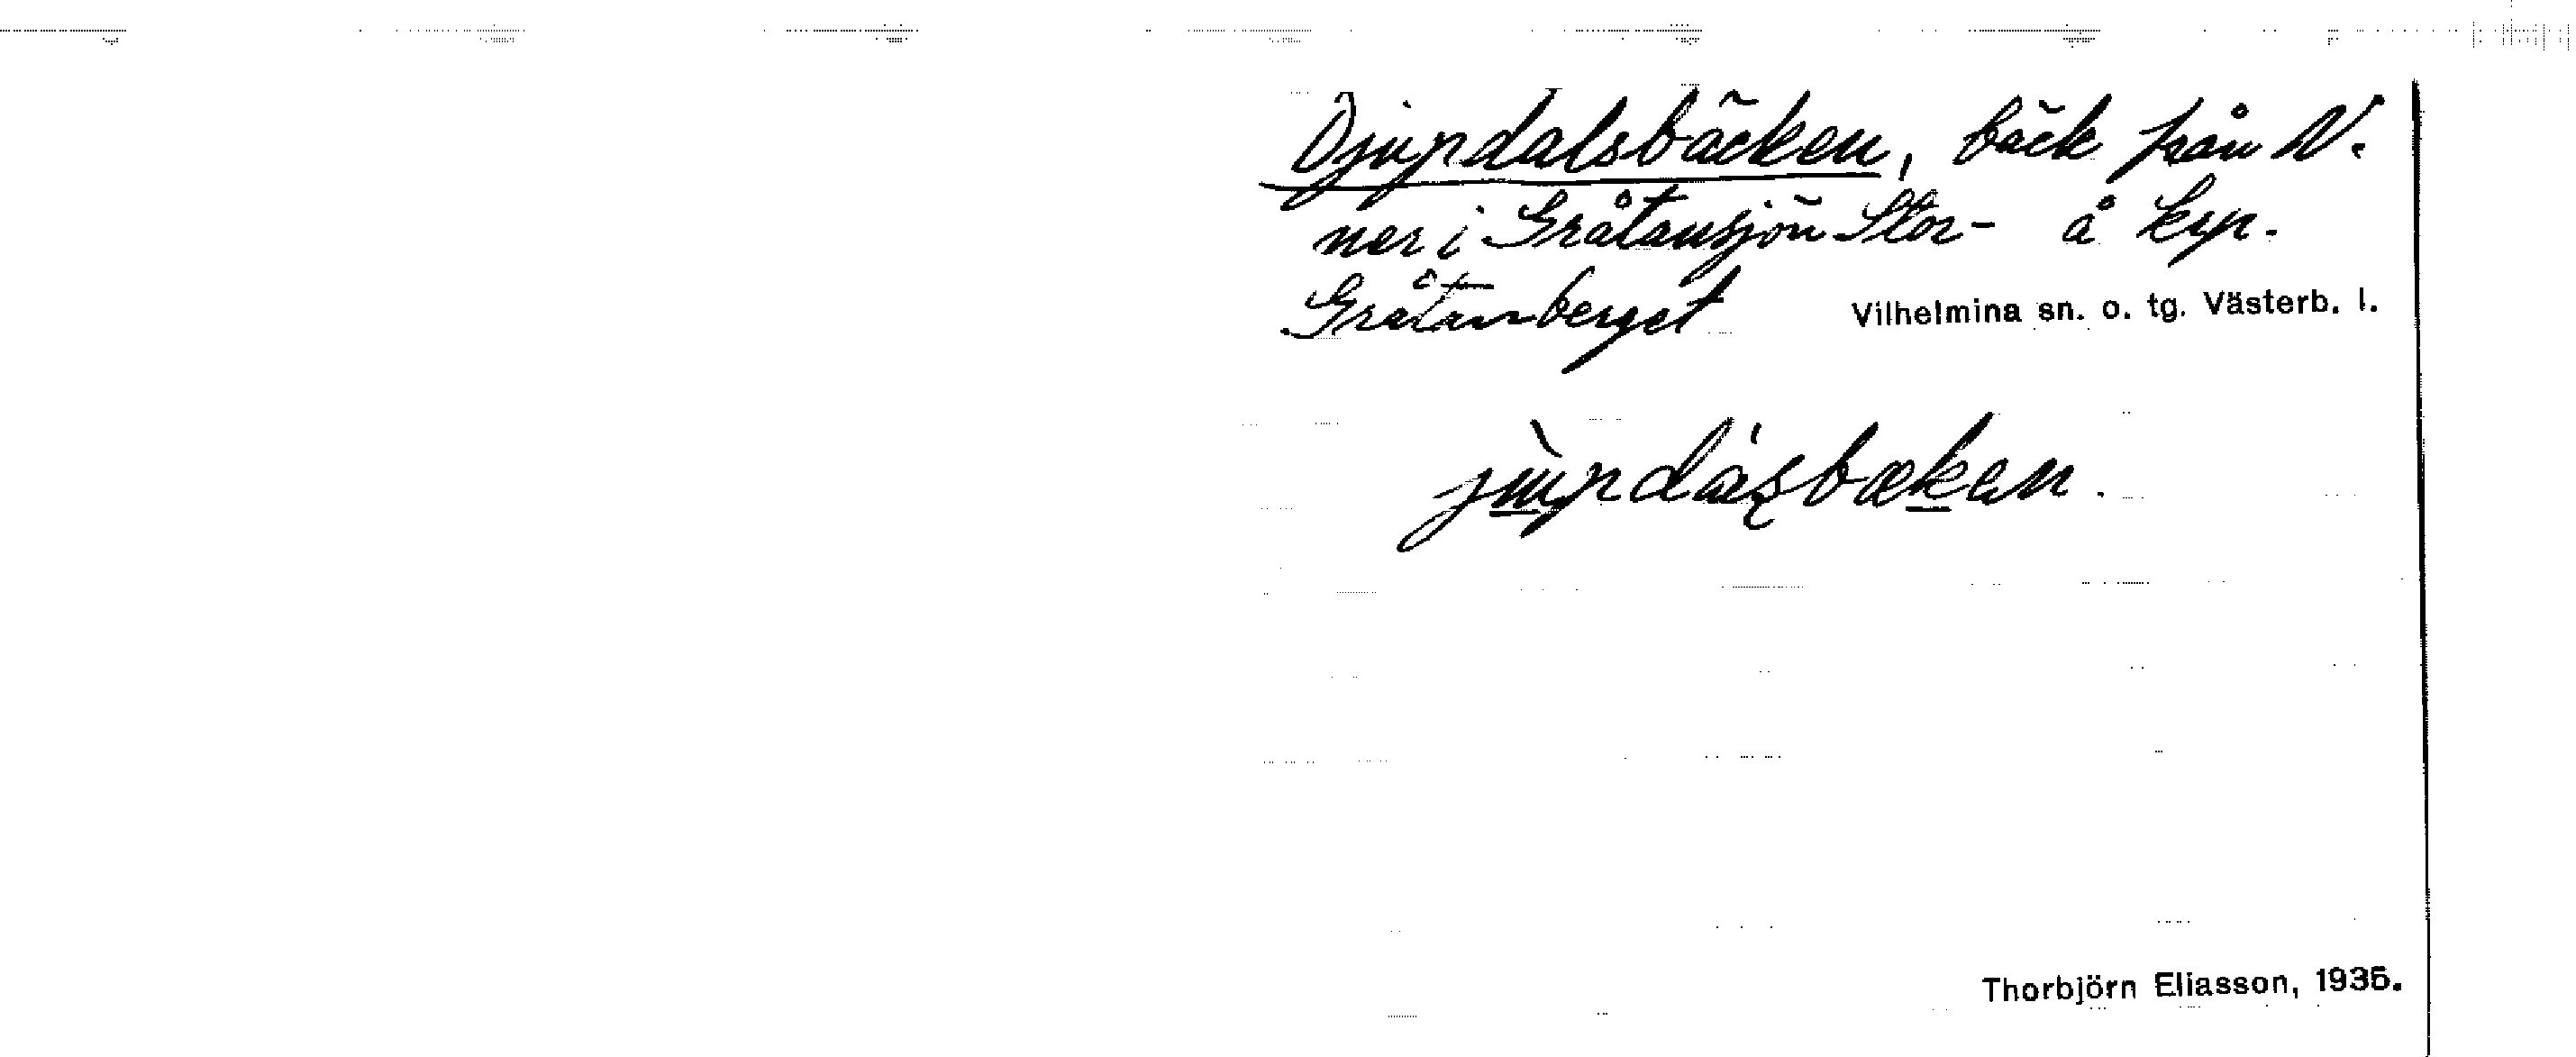 Djupdalsbäcken, bäck från N.
ner i Gråtansjön Stor- å kyp.
Gråtanberget Vilhelmina sn. o. tg. Västerb. l.
jùpdáʂbækən.
Thorbjörn Eliasson, 1935.